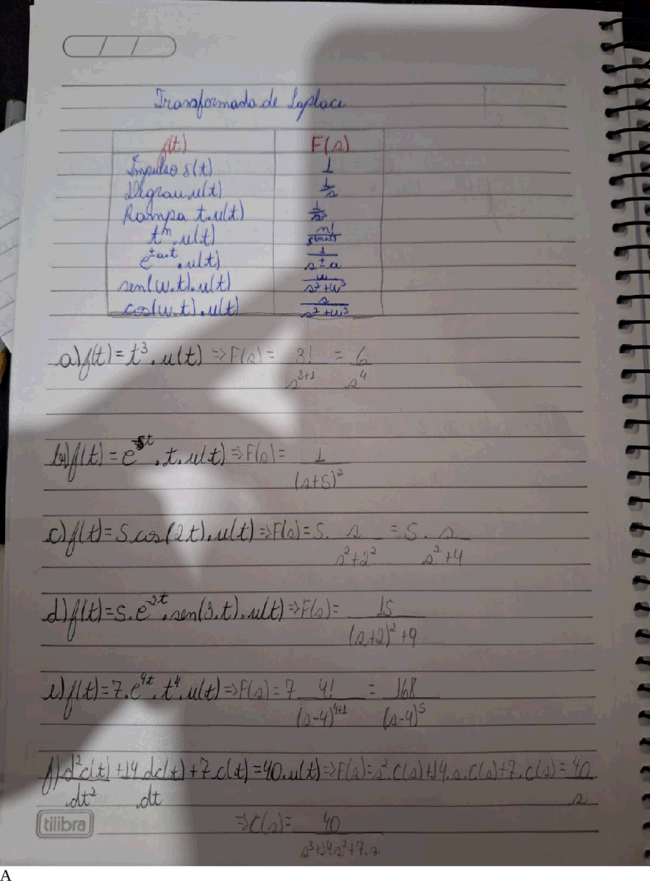 Transformada de Laplace
f(t) F(s)
Impulso δ(t) 1
Degrau u(t) 1/s
Rampa t.u(t) 1/s²
tⁿ.u(t) n!/s(n+1)
e^±a.t.u(t) 1/s±a
sen(w.t).u(t) w/s²+w²
cos(w.t).u(t) s/s²+w²
a) f(t)=t³.u(t) => F(s)= 3!/s³⁺¹ = 6/s⁴
b) f(t)=e^-5t.t.u(t) => F(s)= 1/(s+5)²
c) f(t)=5 cos(2t).u(t) => F(s)=5. s/s²+2² = 5. s/s²+4
d) f(t)=5.e^-2t.sen(3.t).u(t) => F(s)= 15/(s+2)²+9
e) f(t)=7.e^4t.t⁴.u(t) => F(s)=7 4!/(s-4)⁴⁺¹ = 168/(s-4)⁵
f) d²c(t)/dt² + 14 dc(t)/dt + 7.c(t)=40.u(t) => F(s)=s².C(s)+14.s.C(s)+7.C(s)= 40/s
=> C(s)= 40/s³+14s²+7.s
tilibra
A